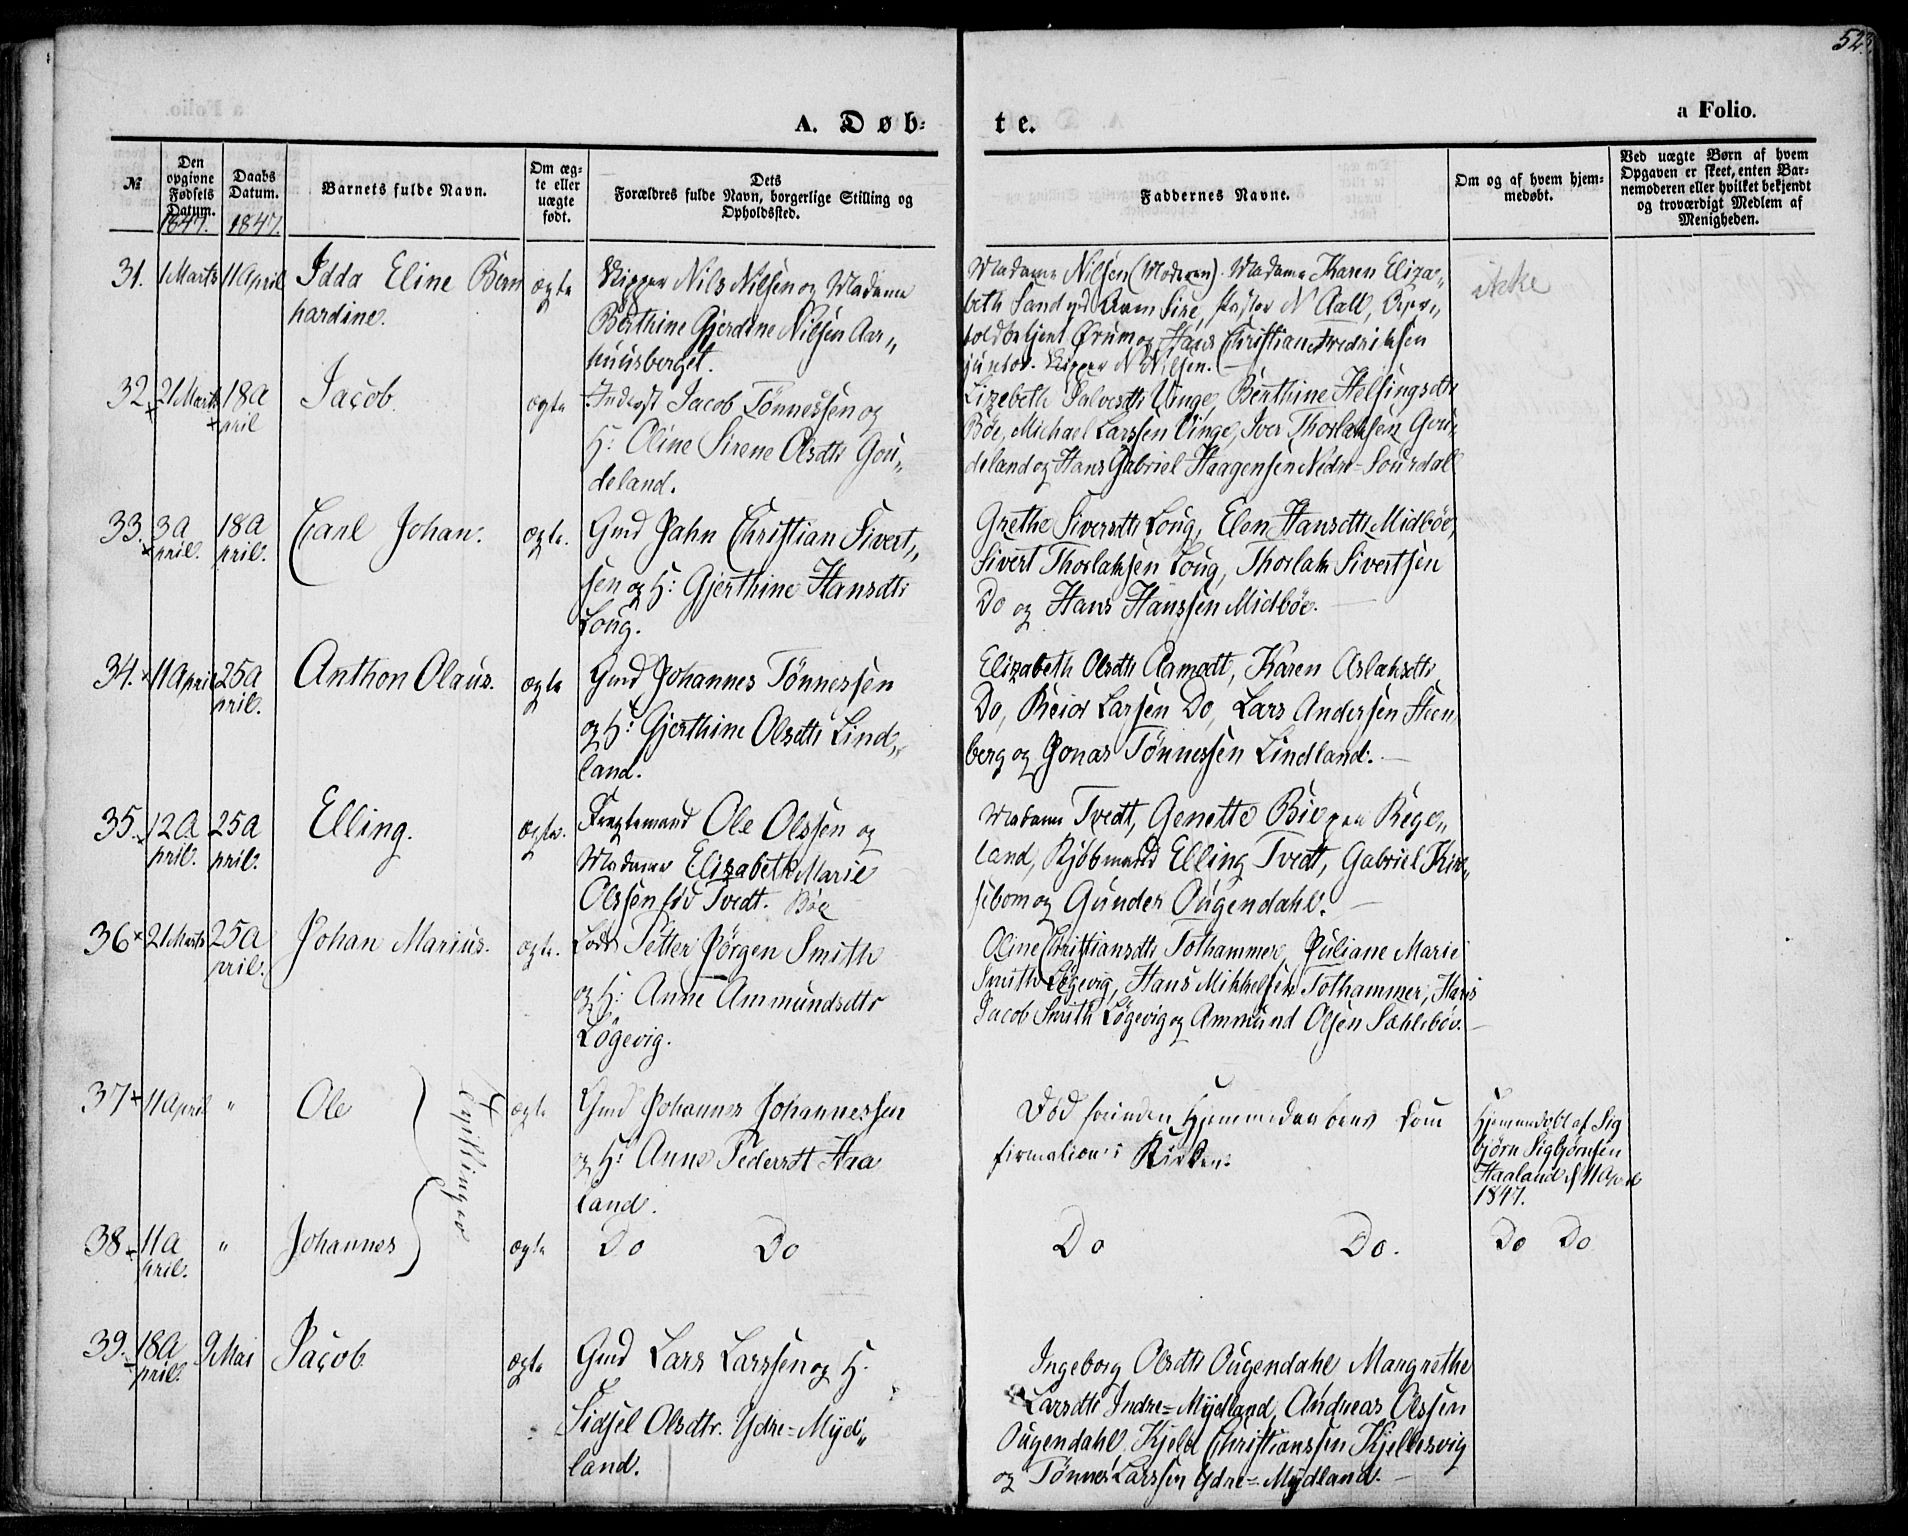 523.
A. Døb-
te.
a Folio.
№
Den
opgivne
Fødsels
Datum.
1847.
Daabs
Datum.
1847.
Barnets fulde Navn.
Om æg-
te eller
uægte
født.
Dets
Forældres fulde Navn, borgerlige Stilling og
Opholdssted.
Faddernes Navne.
Om og af hvem hjem-
medøbt.
Ved uægte Børn af hvem
Opgaven er skeet, enten Bar-
nemoderen eller hvilket bekjendt
og troværdigt Medlem af
Menigheden.
31. 1 Marts 11 April Idda Eline Bern
hardine.
ægte
Skipper Nils Nilsen og Madame
Berthine Gjerdine Nilsen Aar„
huusberget.
Madame Nilsen (Moderen). Madame Karen Eliza„
beth Sand Sire, N Aall,
Ørum og Hans Christian Fredriksen
junior. Skipper N Nilsen.
ikke
32. 21 Marts 18 A
pril
Jacob.
ægte
Inderst Jacob Tønnessen og
H: Oline Sirene Olsdtr Gou„
deland.
Lizebeth Salvesdtr Uinge, Berthine Helsingsdtr
Bøe, Michael Larssen Uinge, Iver Thorlaksen Gou„
deland og Hans Gabriel Haagensen Nedre-Sourdal
33. 3 A
pril.
18 A
pril.
Carl Johan.
ægte.
Gmd Jahn Christian Sivert„
sen og H: Gjerthine Hansdtr
Loug.
Grethe Siversdtr Loug, Elen Hansdtr Midbøe,
Sivert Thorlaksen Loug, Thorlak Sivertsen
Do og Hans Hanssen Midbøe.
34. 11 April 25 A
pril.
Anthon Olaus.
ægte
Gmd Johannes Tønnessen
og H: Gjerthine Olsdtr Lind„
land.
Elizabeth Olsdtr Aamodt, Karen Aslaksdtr
Do, Reior Larsen Do, Lars Andersen Steen
berg og Jonas Tønnessen Lindland.
35. 12 A
pril.
25 A
pril.
Elling.
ægte.
Fragtemand Ole Olssen og
Madame Elizabeth Marie
Olssen fød Tvedt. Bøe
Madame Tvedt, Genette Bøe paa Rege„
land, Kjøbmand Elling Tvedt, Gabriel Kir„
sebom og Gunder Ougendahl.
36 21 Marts 25 A
pril.
Johan Marius.
ægte.
Lods Petter Jørgen Smith
og H: Anne Ammundsdtr
Løgevig.
Oline Christiansdtr Tothammer, Juliane Marie
Smith Løgevig, Hans Mikkelsen Tothammer, Hans
Jacob Smith Løgevig og Ammund Olsen Sahlebøe.
37 11 April „ Ole
Tvillinger
ægte
Gmd Johannes Johannessen
og H: Anne Pedersdt Haa
land.
Død forinden Hjemmedaabens Con
firmation i Kirken.
Hjemmedøbt af Sig
bjørn Sigbjørnsen
Haaland d 11 April
1847.
38 11 A
pril.
„ Johannes
ægte
Do Do
Do Do.
Do Do
39. 18 A
pril.
9 Mai Jacob
ægte
Gmd Lars Larssen og H.
Sidsel Olsdtr. Ydre-Myd„
land.
Ingeborg Olsdtr Ougendahl Margrethe
Larsdtr Indre-Mydland, Andreas Olssen
Ougendahl, Kjeld Christianssen Kjellesvig
og Tønnes Larssen Ydre-Mydland.